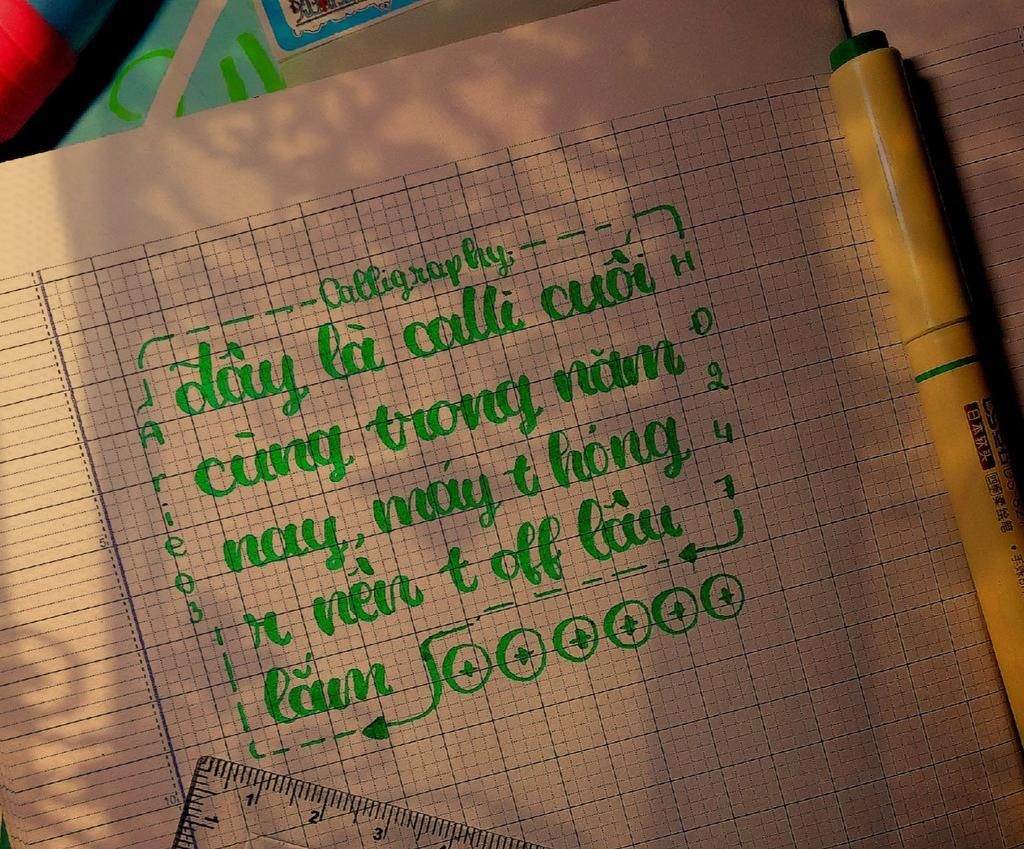 Calligraphy:
đây là calli cuối
cùng trong năm
nay, máy t hỏng
r nên t off lâu
lắm
A
r
i
e
0
3
H
0
2
4
7
1
2
3
1
10